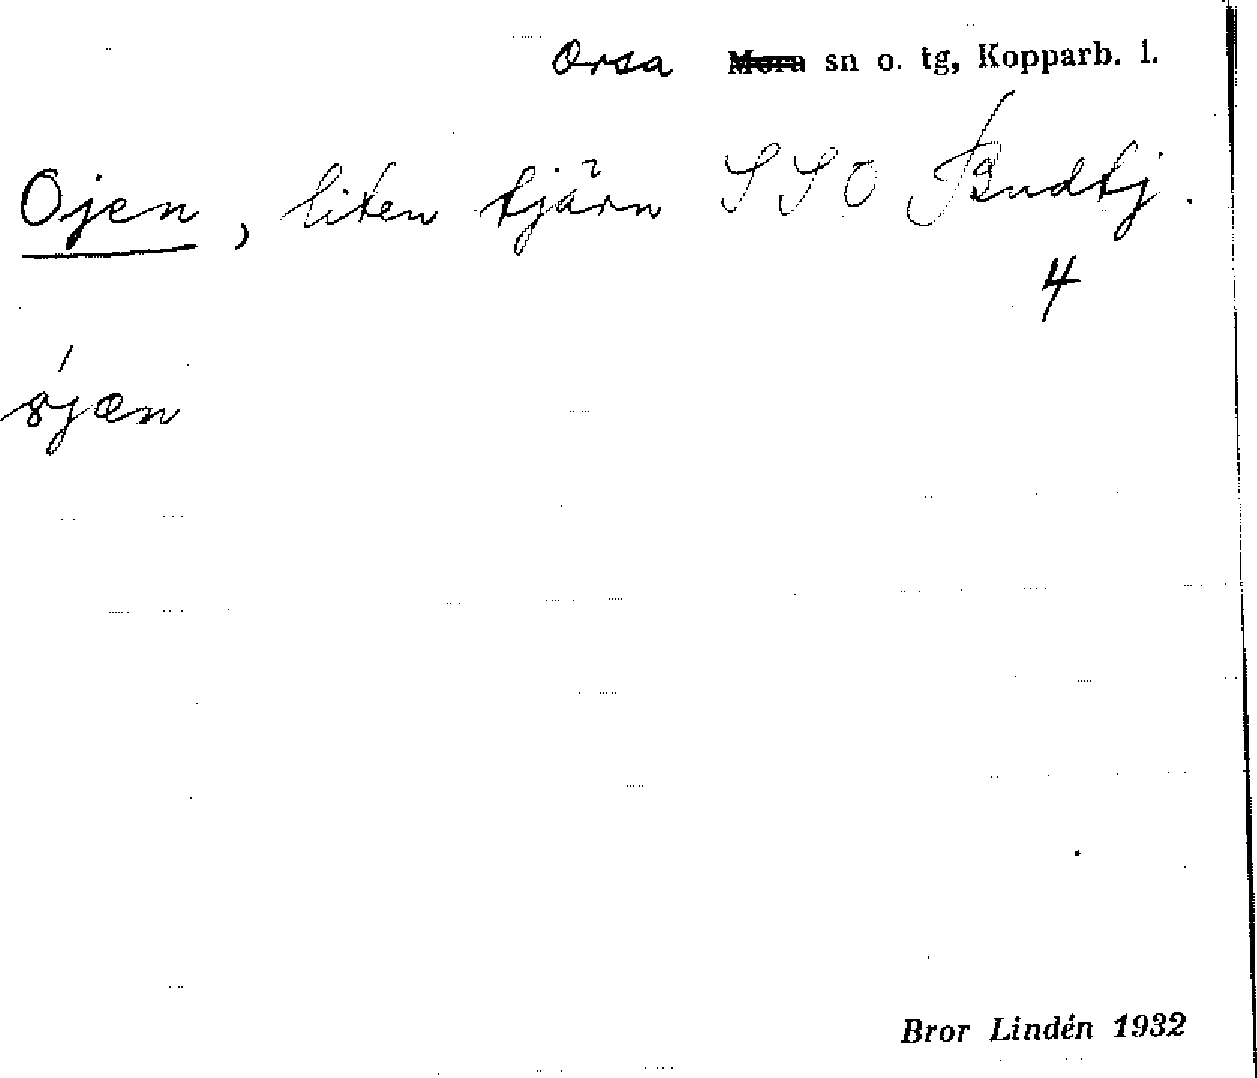 Orsa Mora sn o. tg, Kopparb. l.
Ojen, liten tjärn SSO Budtj.
4
Bror Lindén 1932